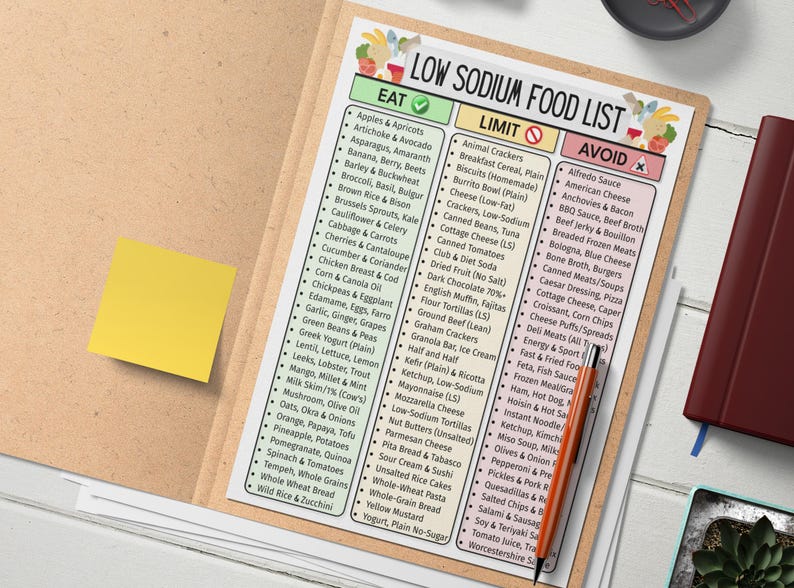 LOW SODIUM FOOD LIST
EAT
Apples & Apricots
Artichoke & Avocado
Asparagus, Amaranth
Banana, Berry, Beets
Barley & Buckwheat
Broccoli, Basil, Bulgur
Brown Rice & Bison
Brussels Sprouts, Kale
Cauliflower & Celery
Cabbage & Carrots
Cherries & Cantaloupe
Cucumber & Coriander
Chicken Breast & Cod
Corn & Canola Oil
Chickpeas & Eggplant
Edamame, Eggs, Farro
Garlic, Ginger, Grapes
Green Beans & Peas
Greek Yogurt (Plain)
Lentil, Lettuce, Lemon
Leeks, Lobster, Trout
Mango, Millet & Mint
Milk Skim/1% (Cow's)
Mushroom, Olive Oil
Oats, Okra & Onions
Orange, Papaya, Tofu
Pineapple, Potatoes
Pomegranate, Quinoa
Spinach & Tomatoes
Tempeh, Whole Grains
Whole Wheat Bread
Wild Rice & Zucchini
LIMIT
Animal Crackers
Breakfast Cereal, Plain
Biscuits (Homemade)
Burrito Bowl (Plain)
Cheese (Low-Fat)
Crackers, Low-Sodium
Canned Beans, Tuna
Cottage Cheese (LS)
Canned Tomatoes
Club & Diet Soda
Dried Fruit (No Salt)
Dark Chocolate 70%+
English Muffin, Fajitas
Flour Tortillas (LS)
Ground Beef (Lean)
Graham Crackers
Granola Bar, Ice Cream
Half and Half
Kefir (Plain) & Ricotta
Ketchup, Low-Sodium
Mayonnaise (LS)
Mozzarella Cheese
Low-Sodium Tortillas
Nut Butters (Unsalted)
Parmesan Cheese
Pita Bread & Tabasco
Sour Cream & Sushi
Unsalted Rice Cakes
Whole-Wheat Pasta
Whole-Grain Bread
Yellow Mustard
Yogurt, Plain No-Sugar
AVOID
Alfredo Sauce
American Cheese
Anchovies & Bacon
BBQ Sauce, Beef Broth
Beef Jerky & Bouillon
Breaded Frozen Meats
Bologna, Blue Cheese
Bone Broth, Burgers
Canned Meats/Soups
Caesar Dressing, Pizza
Cottage Cheese, Caper
Croissant, Corn Chips
Cheese Puffs/Spreads
Deli Meats (All Types)
Energy & Sport
Fast & Fried Foo
Feta, Fish Sauce
Frozen Meal/Gra
Ham, Hot Dog,
Hoisin & Hot Sa
Instant Noodle/
Ketchup, Kimch
Miso Soup, Milks
Olives & Onion
Pepperoni & Pre
Pickles & Pork R
Quesadillas & Re
Salted Chips & B
Salami & Sausag
Soy & Teriyaki Sa
Tomato Juice, Tra ix
Worcestershire Sa e